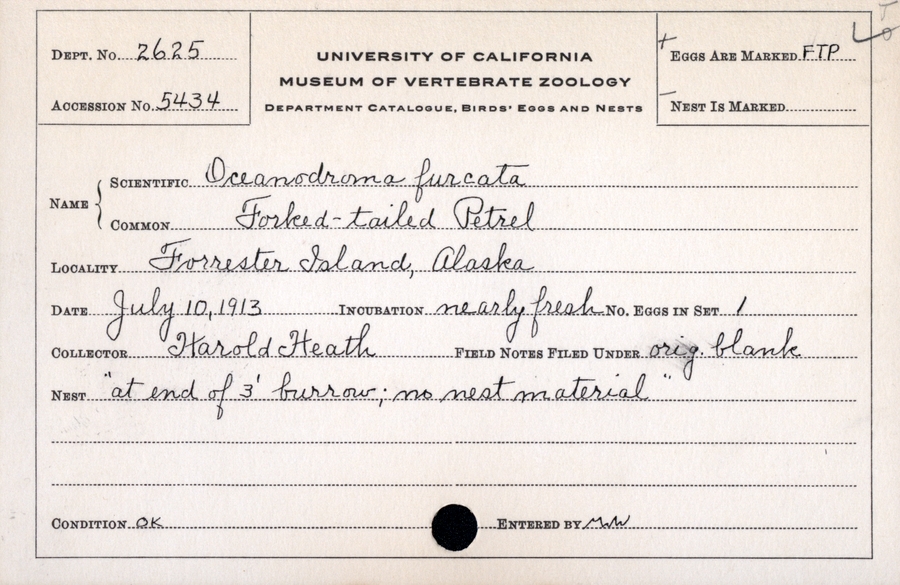 Dept. No. 2625
Accession No. 5434
UNIVERSITY OF CALIFORNIA
MUSEUM OF VERTEBRATE ZOOLOGY
Department Catalogue, Birds' Eggs and Nests
+ Eggs Are Marked FTP
– Nest Is Marked
Name { Scientific Oceanodroma furcata
Common Forked-tailed Petrel
Locality Forrester Island, Alaska
Date July 10, 1913 Incubation nearly fresh No. Eggs in Set 1
Collector Harold Heath Field Notes Filed Under orig. blank
Nest "at end of 3' burrow; no nest material"
Condition OK Entered by